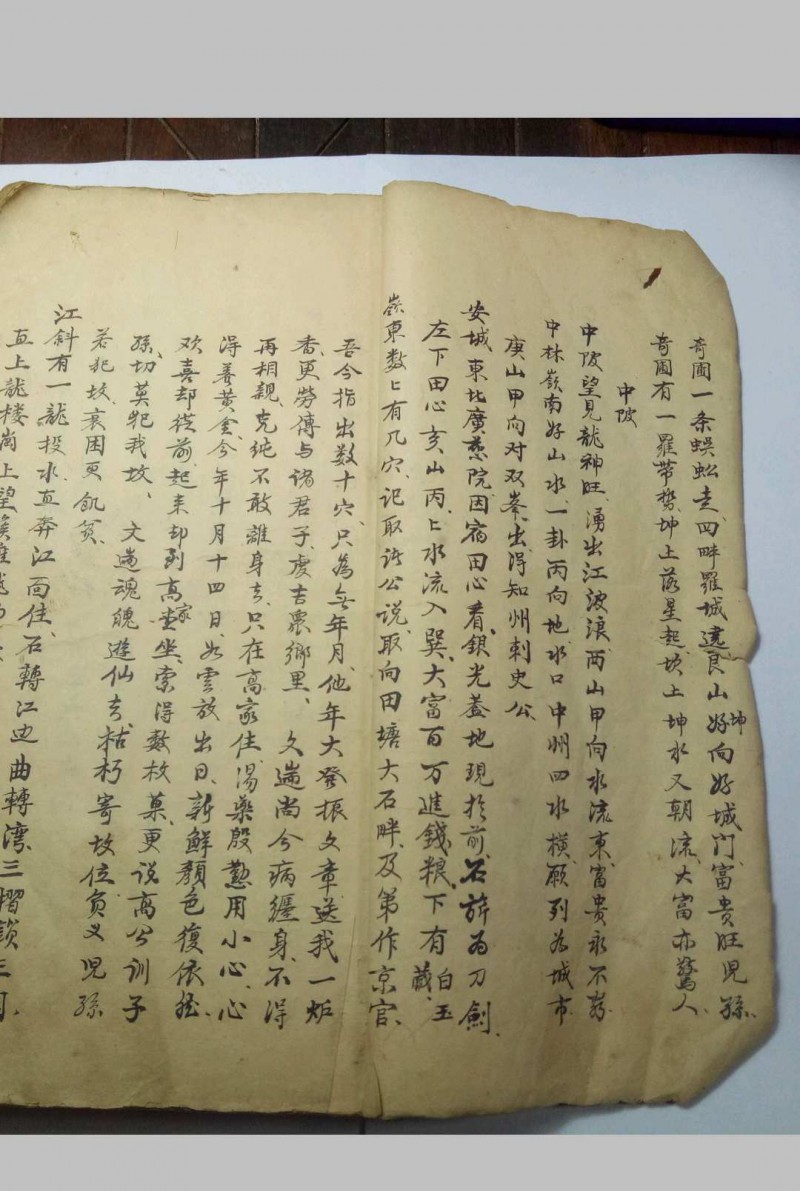 奇圃一条蜈蚣走、四畔羅城遶、艮山好坤向好城門、富貴旺児孫
奇圃有一羅带势、坤上落星起、坎上坤水又朝流、大富亦驚人、
中陂
中陂望見龍神旺、湧出江波浪、丙山甲向水流東、富貴永不窮
中林嶺南好山水、一卦丙向地、水口中州四水横、願列为城市
庚山甲向对双峯、出得知州刺史公、
安城東北廣慈院、因宿田心看、銀光蓋地現於前、石 为刀劍、
左下田心亥山丙、上水流入巽、大富百万進錢粮、下有白玉藏、
嶺東数上有几穴、记取許公说、取向田塘大石畔、及第作京官、
吾今指出数十穴、只為 年月、他年大登振文章、送我一炉
香、更勞傳与诸君子、 吉 鄉里、 文 尚今病纏身、不得
再相親、克纯不敢離身去、只在高家住、湯藥殷懃用小心、心
得养黄金、今年十月十四日、如雲放出日、新鮮顏色復依 、
欢喜却從前、起来却到高家 坐、索得数枚菓、更说高公訓子
孫、切莫犯我坟、文 魂魄遊仙去、枯朽寄坟位、負义児孫
若犯坟、衰困更飢貧、
江斜有一龍投水、直奔江面住、石轉江边曲轉湾、三摺
直上龍楼崗上望